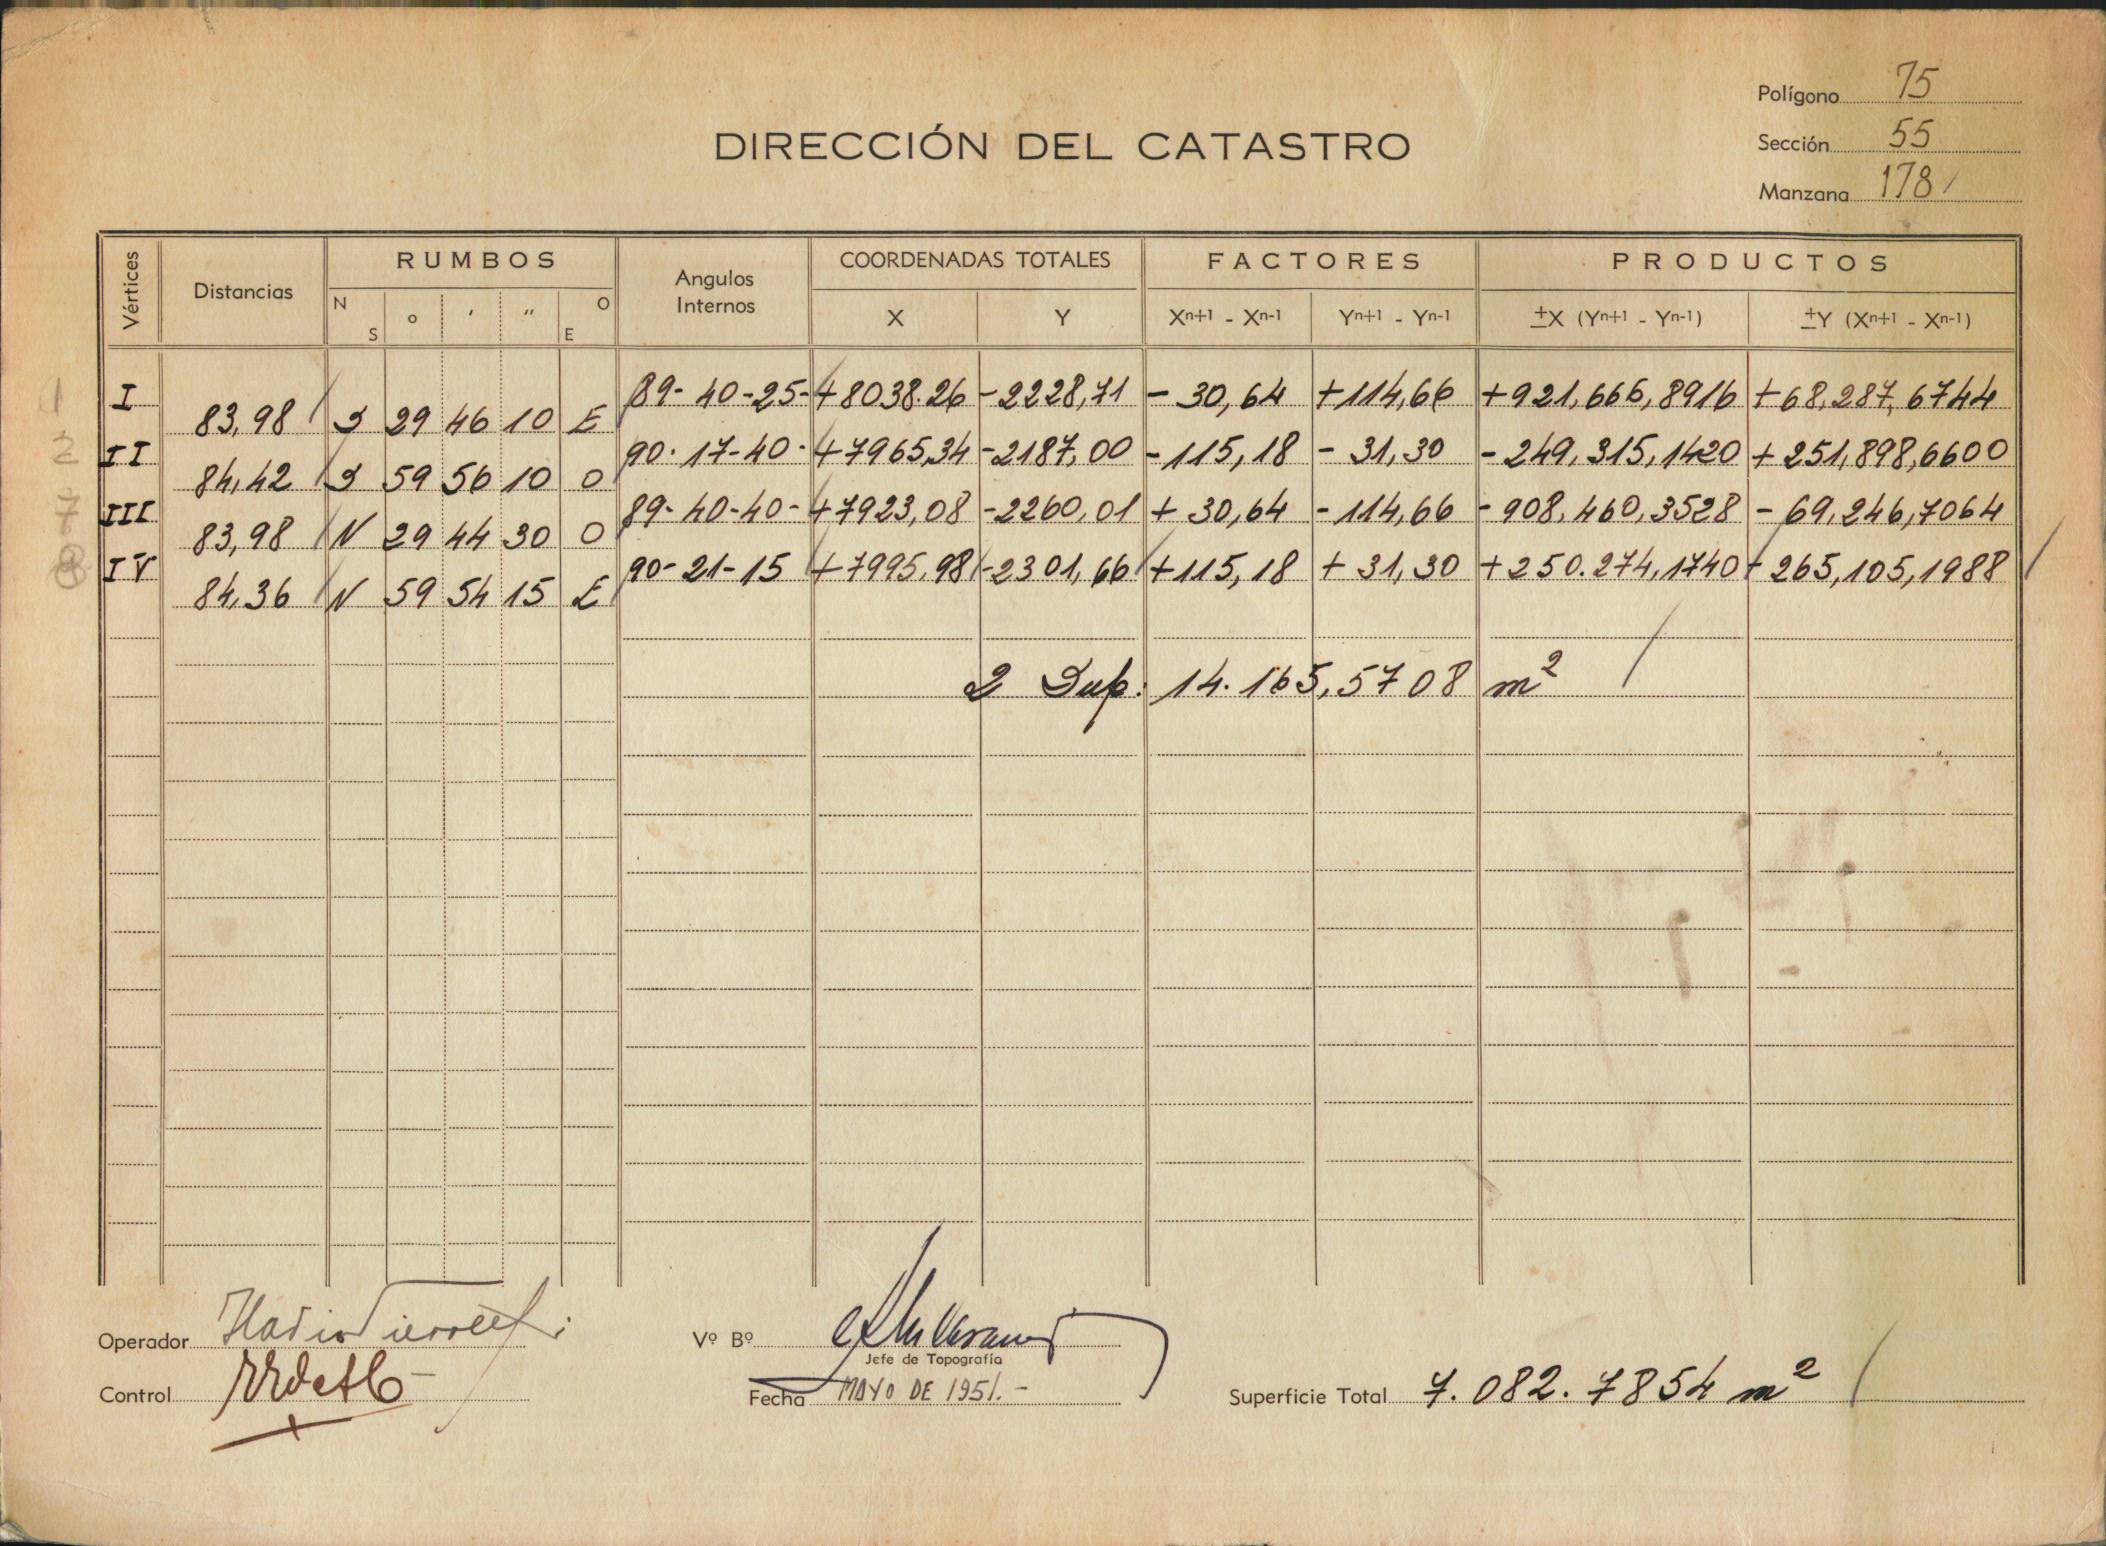 Polígono 75
DIRECCIÓN DEL CATASTRO
Sección 55
Manzana 178
Vértices Distancias RUMBOS Angulos Internos COORDENADAS TOTALES FACTORES PRODUCTOS
N S ° ′ ″ O E X Y Xⁿ⁺¹ - Xⁿ⁻¹ Yⁿ⁺¹ - Yⁿ⁻¹ ±X (Yⁿ⁺¹ - Yⁿ⁻¹) ±Y (Xⁿ⁺¹ - Xⁿ⁻¹)
1 I 89-40-25- +8038.26 -2228,71 - 30,64 +114,66 +921,666,8916 +68,287,6744
83,98 S 29 46 10 E
2 II 90-17-40- +7965,34 -2187,00 -115,18 - 31,30 -249,315,1420 +251,898,6600
84,42 S 59 56 10 O
7 III 89-40-40- +7923,08 -2260,01 + 30,64 -114,66 -908,460,3528 -69,246,7064
83,98 N 29 44 30 O
8 IV 90-21-15 +7995,98 -2301,66 +115,18 + 31,30 +250.274,1740 -265,105,1988
84,36 N 59 54 15 E
2 Sup: 14.165,5708 m²
Operador
Vº Bº
Jefe de Topografía
Control
Fecha MAYO DE 1951.-
Superficie Total 7.082.7854 m²